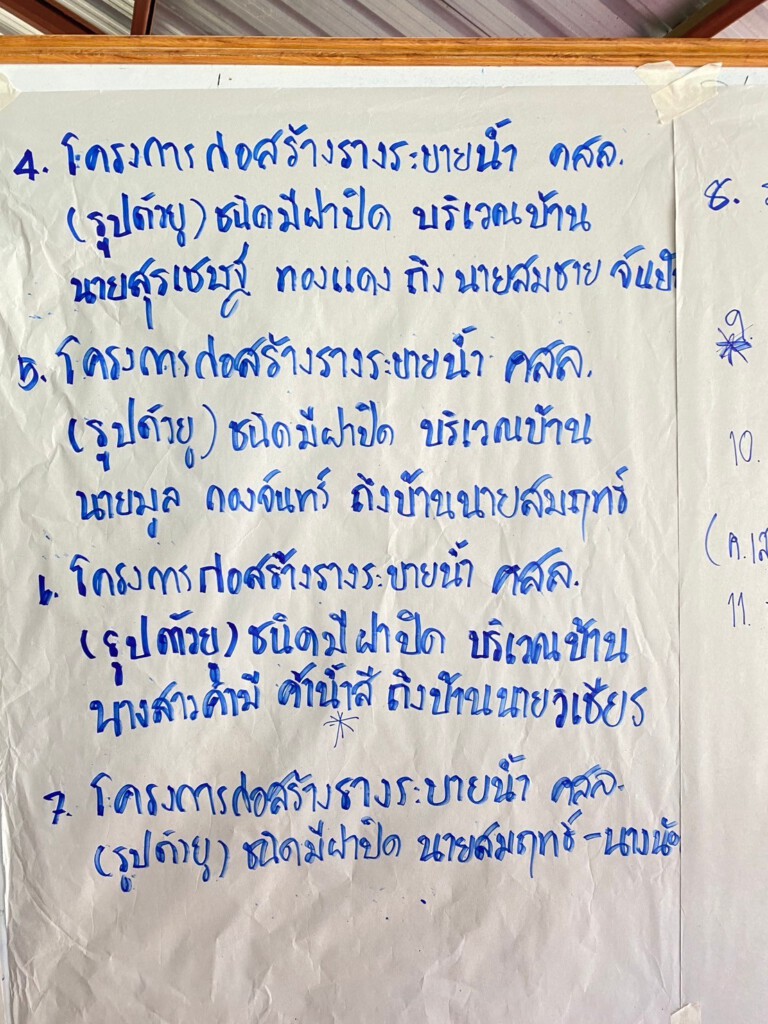 4. โครงการก่อสร้างรางระบายน้ำ คสล.
(รูปตัวยู) ชนิดมีฝาปิด บริเวณบ้าน
นายสุรเชษฐ์ ทองแดง ถึง นายสมชาย
5. โครงการก่อสร้างรางระบายน้ำ คสล.
(รูปตัวยู) ชนิดมีฝาปิด บริเวณบ้าน
นายมูล กองจันทร์ ถึงบ้านนายสมฤทธิ์
6. โครงการก่อสร้างรางระบายน้ำ คสล.
(รูปตัวยู) ชนิดมีฝาปิด บริเวณบ้าน
นางสาวคำมี ถึงบ้านนายวิเชียร
7. โครงการก่อสร้างรางระบายน้ำ คสล.
(รูปตัวยู) ชนิดมีฝาปิด นายสมฤทธิ์ -
8.
9.
10.
11.